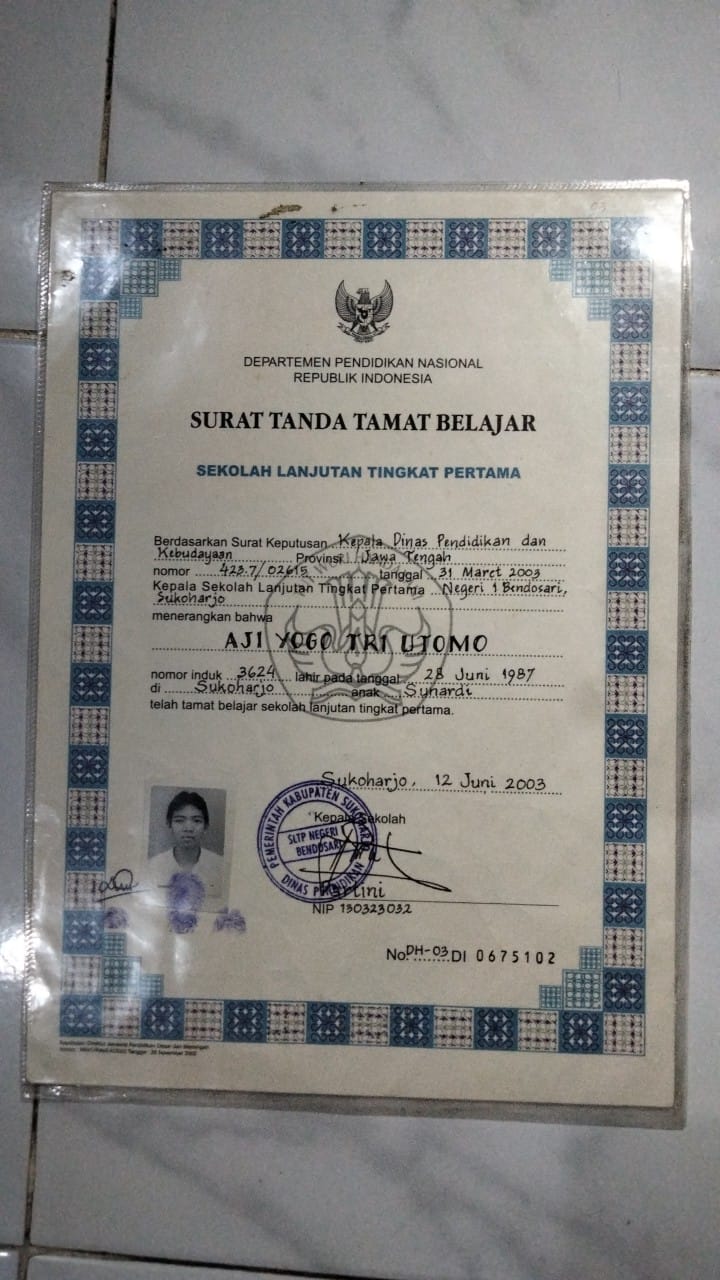 03
DEPARTEMEN PENDIDIKAN NASIONAL
REPUBLIK INDONESIA
SURAT TANDA TAMAT BELAJAR
SEKOLAH LANJUTAN TINGKAT PERTAMA
Berdasarkan Surat Keputusan Kepala Dinas Pendidikan dan
Kebudayaan Provinsi Jawa Tengah
nomor 423.7/02615 tanggal 31 Maret 2003
Kepala Sekolah Lanjutan Tingkat Pertama Negeri 1 Bendosari,
Sukoharjo
menerangkan bahwa
AJI YOGO TRI UTOMO
nomor induk 3624 lahir pada tanggal 28 Juni 1987
di Sukoharjo anak Sunardi
telah tamat belajar sekolah lanjutan tingkat pertama.
Sukoharjo, 12 Juni 2003
Kepala Sekolah
PEMERINTAH KABUPATEN
SLTP NEGERI
BENDOSARI
DINAS PENDIDIKAN
NIP 130323032
No. DH-03 DI 0675102